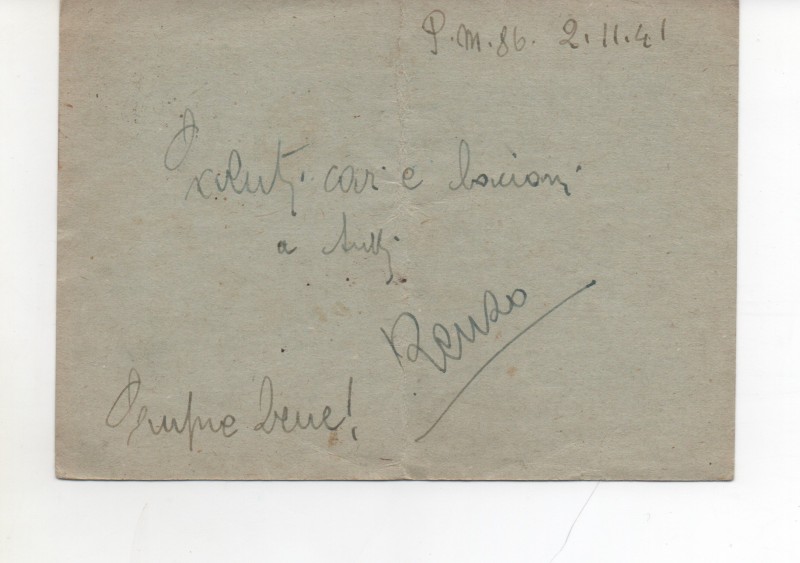 P.M. 86. 2.11.41
Saluti cari e bacioni
a tutti
Renzo
Sempre bene!